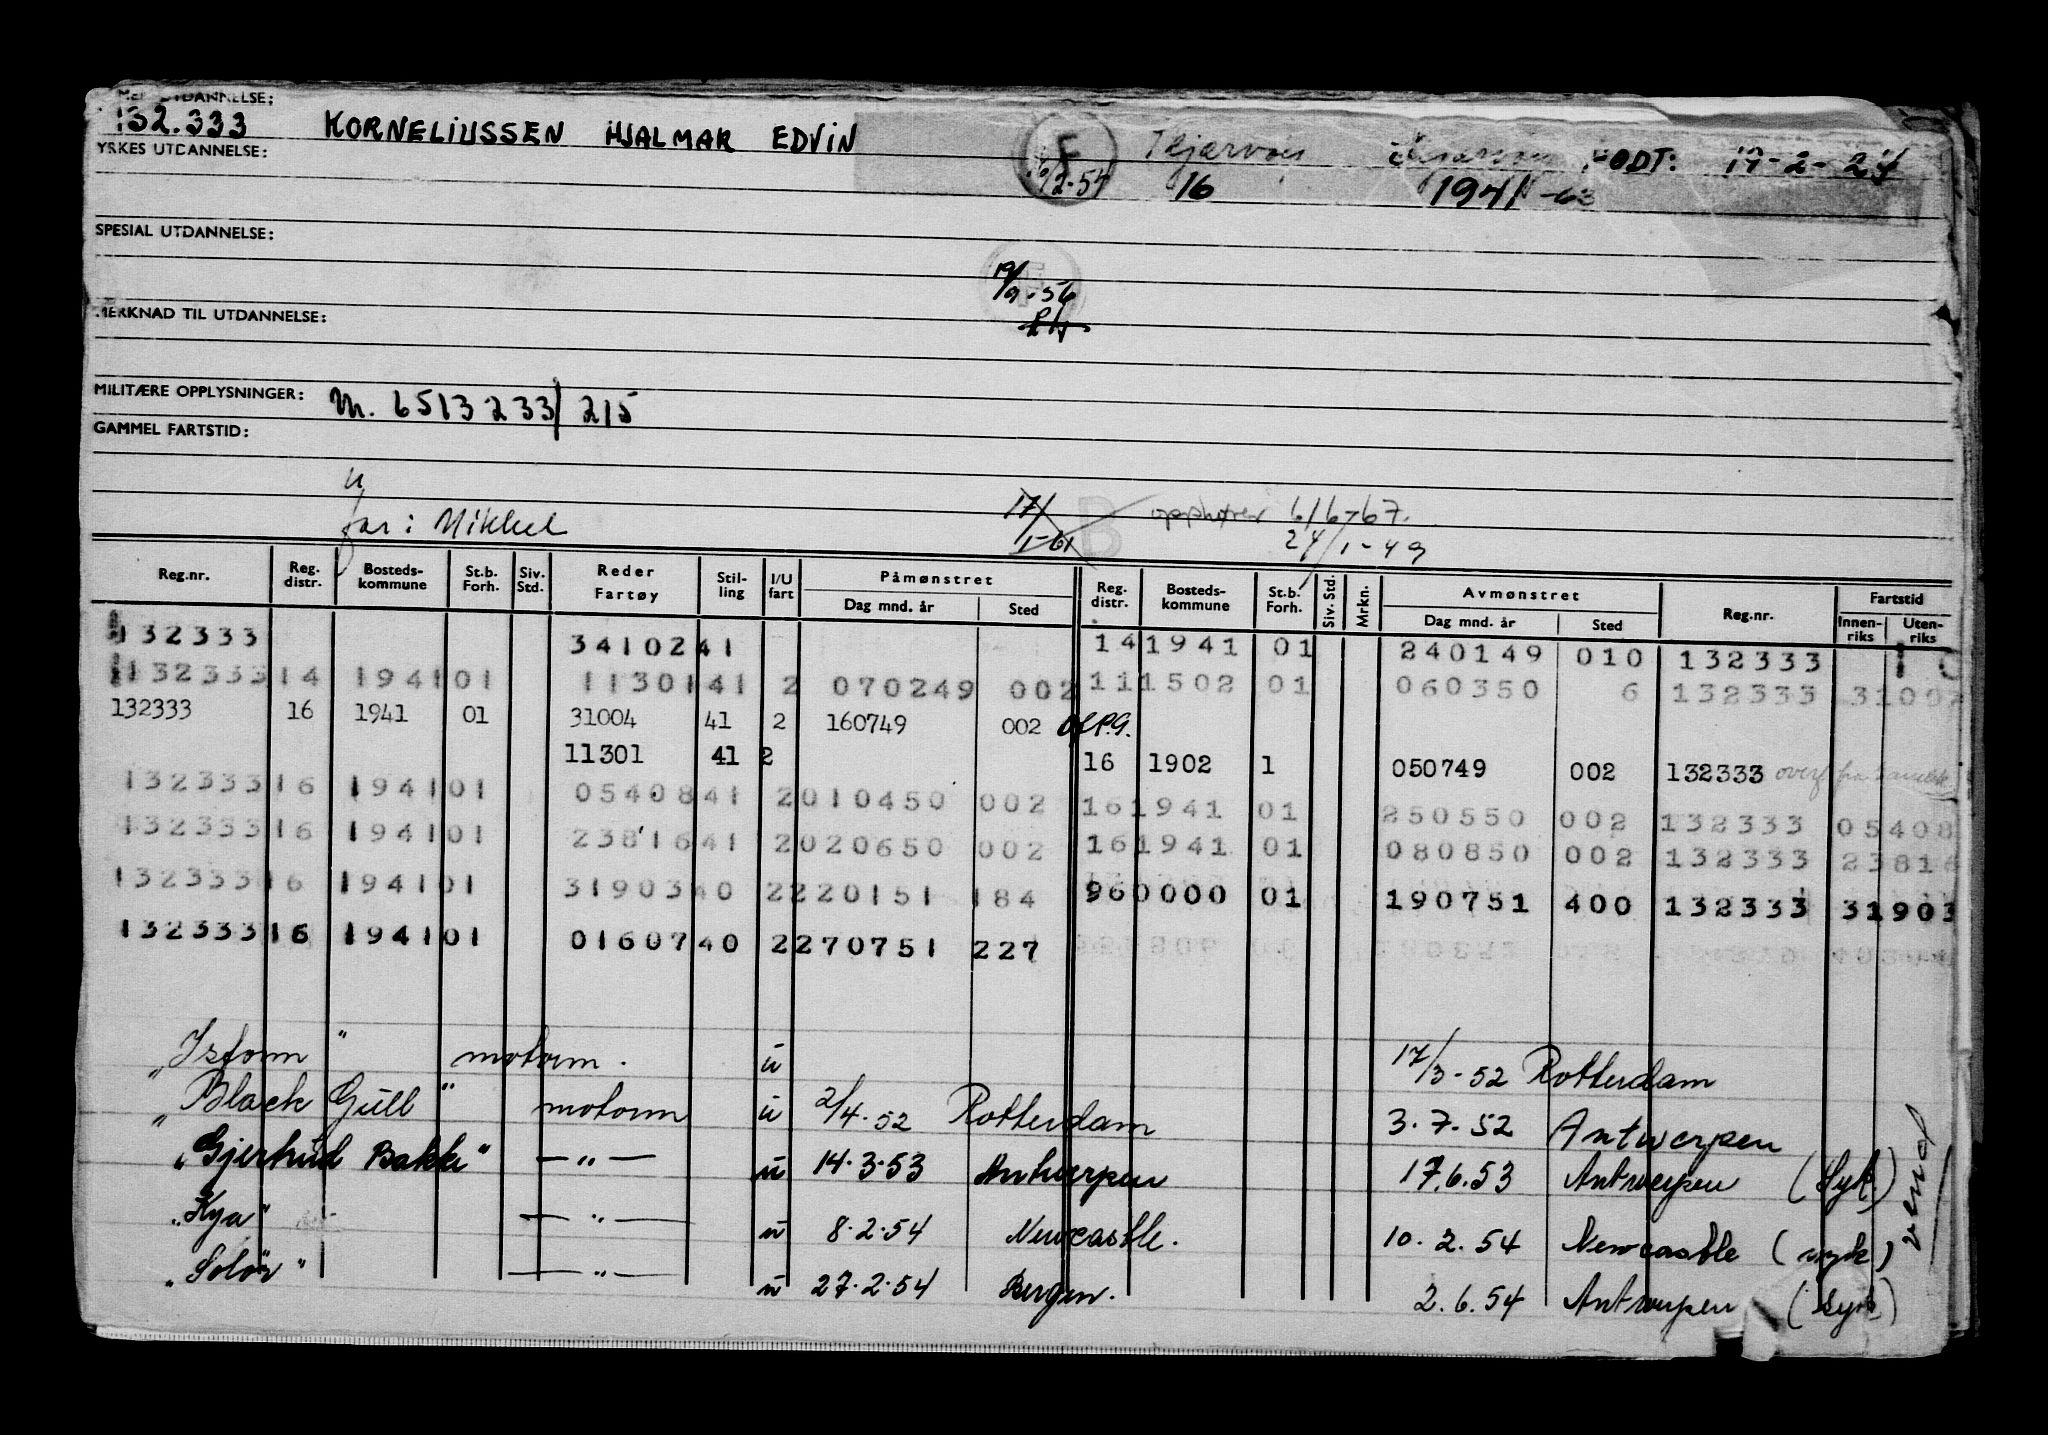 UTDANNELSE:
132.333 KORNELIUSSEN HJALMAR EDVIN F Skjervøy FØDT: 19-2-24
YRKES UTDANNELSE: 2-54 16 1941
SPESIAL UTDANNELSE:
19/9-56
MERKNAD TIL UTDANNELSE:
MILITÆRE OPPLYSNINGER: M. 6513233/215
GAMMEL FARTSTID:
u
far: Mikkel 17/1-61 B opphører 6/6-67.
24/1-49
Reg.nr. Reg. distr. Bosteds-kommune St.b. Forh. Siv. Std. Reder Fartøy Stil-ling I/U fart Påmønstret Dag mnd. år Sted Reg. distr. Bosteds-kommune St.b. Forh. Siv. Std. Mrkn. Avmønstret Dag mnd. år Sted Reg.nr. Fartstid Innen-riks Uten-riks
132333 3410241 141941 01 240149 010 132333
13233314 194101 1130141 2 070249 002 111502 01 060350 6 132333 31007
132333 16 1941 01 31004 41 2 160749 002
11301 41 2 16 1902 1 050749 002 132333 overf fra
13233316 194101 0540841 2010450 002 161941 01 250550 002 132333 05408
13233316 194101 2381641 2020650 002 161941 01 080850 002 132333 23816
13233316 194101 3190340 2220151 184 960000 01 190751 400 132333 31903
13233316 194101 0160740 2270751 227
"Isfonn" motorm. u 17/3-52 Rotterdam
"Black Gull" motorm u 2/4.52 Rotterdam 3.7.52 Antwerpen
"Gjertrud Bakke" —"— u 14.3.53 Antwerpen 17.6.53 Antwerpen (syk)
"Kya" —"— u 8.2.54 Newcastle. 10.2.54 Newcastle (syk)
"Solør" —"— u 27.2.54 Bergen. 2.6.54 Antwerpen (syk)
vend